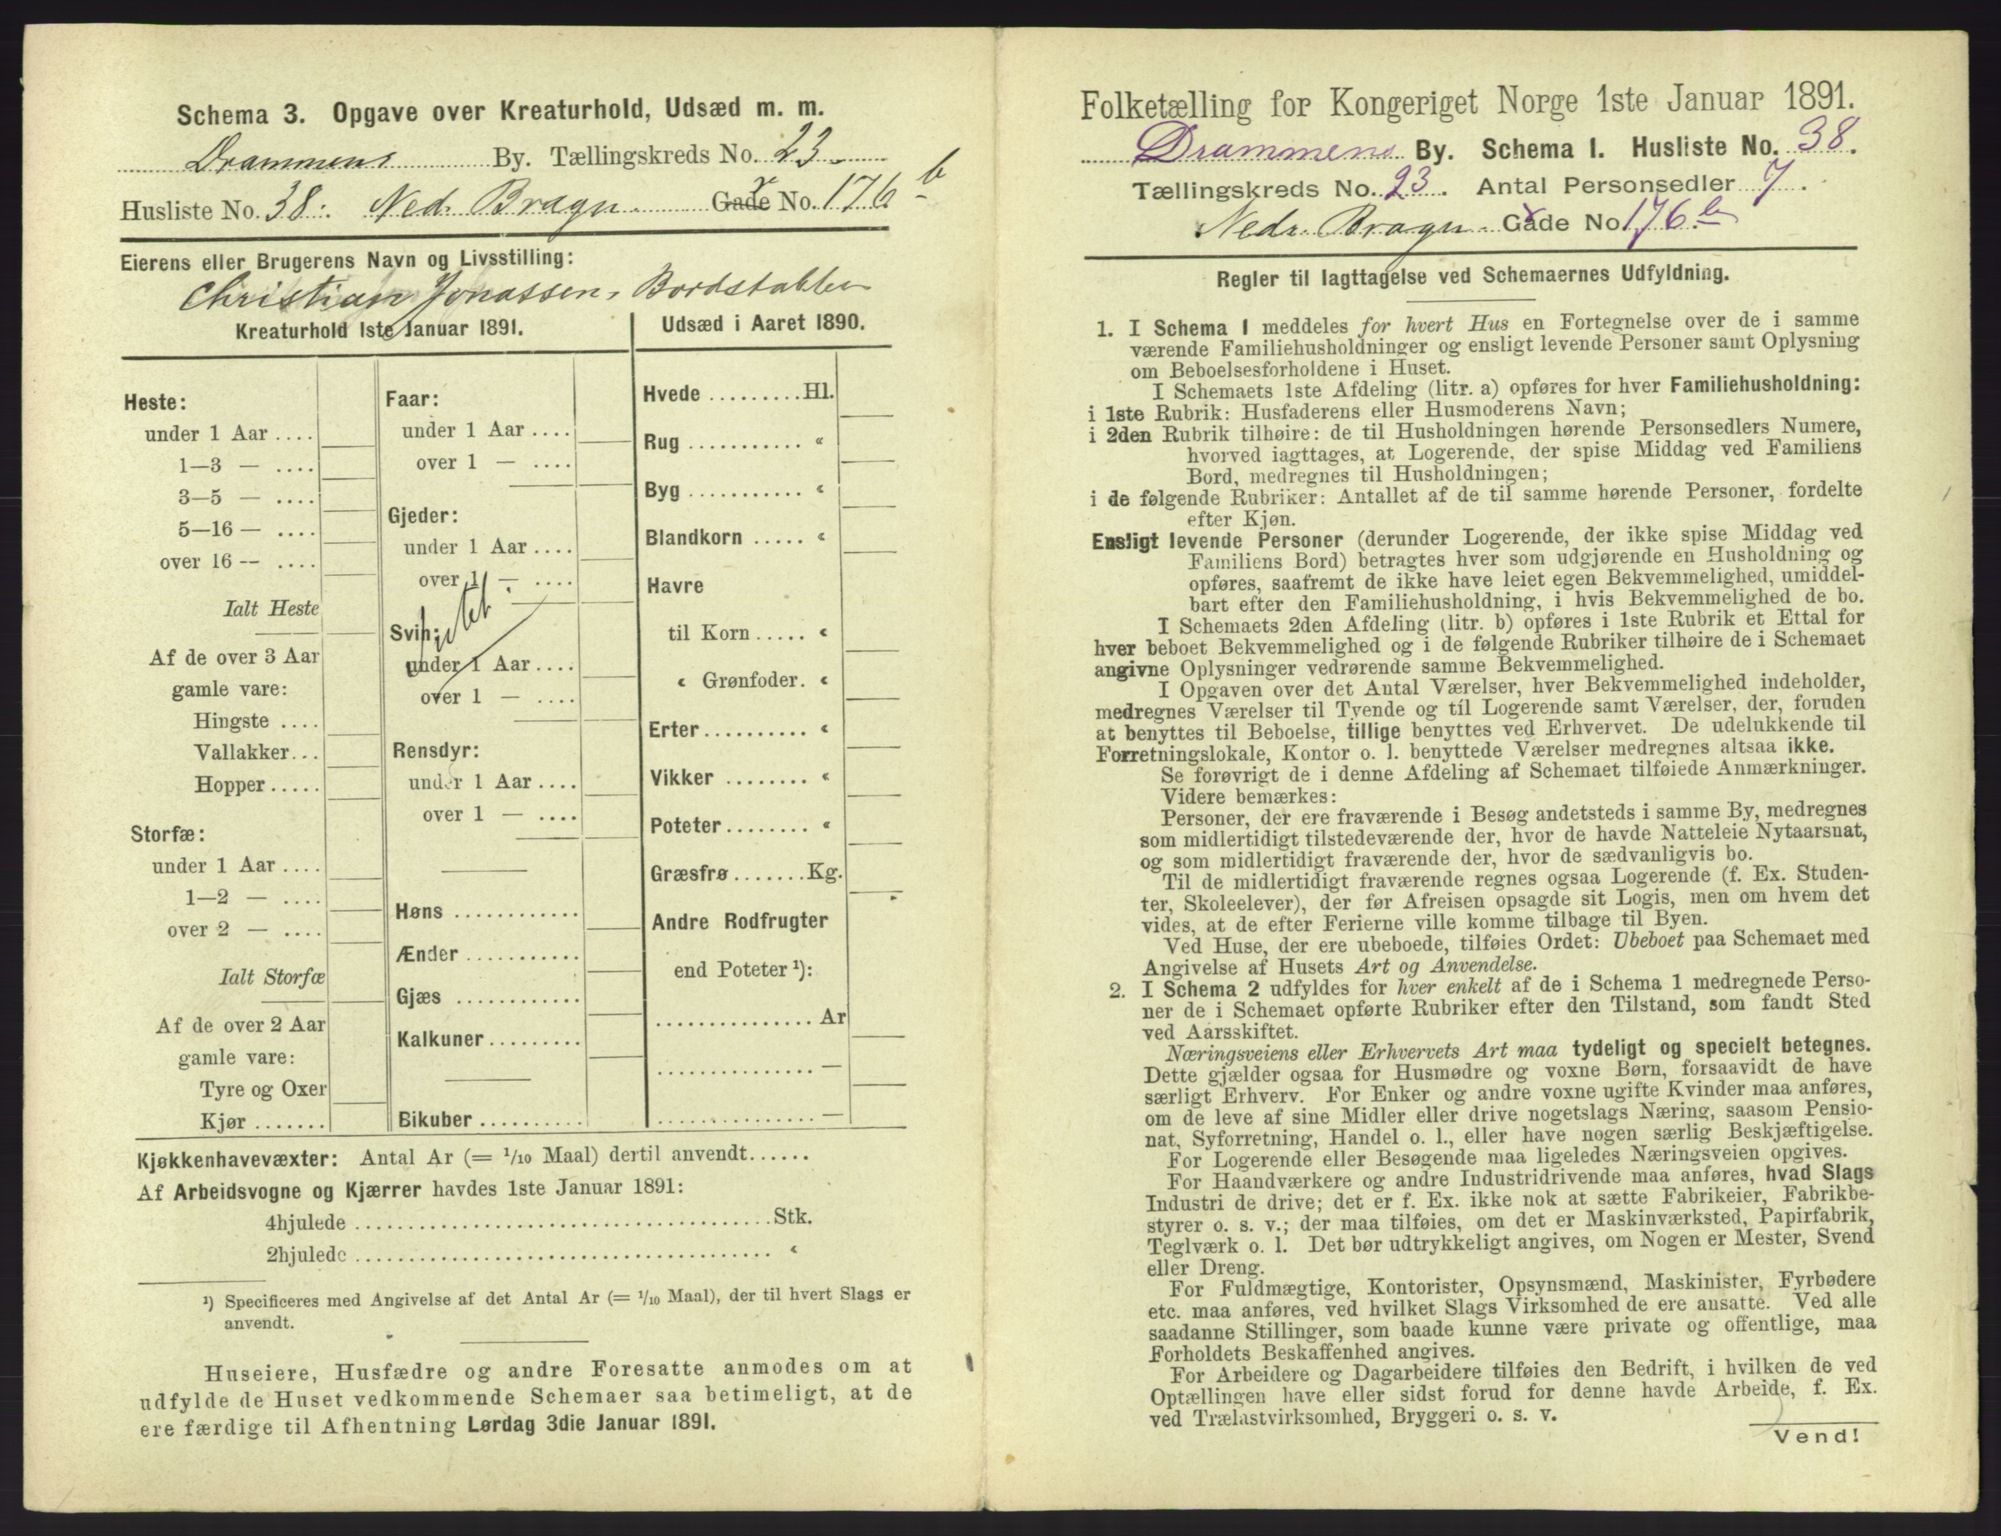 Schema 3. Opgave over Kreaturhold, Udsæd m. m.
Drammens By. Tællingskreds No. 23.
Husliste No. 38. Ned. Bragn. Gade No. 176 b
Eierens eller Brugerens Navn og Livsstilling:
Christian Jonassen, Bordstabler
Kreaturhold 1ste Januar 1891.
Heste:
under 1 Aar ....
1—3 — ....
3—5 — ....
5—16 — ....
over 16 — ....
Ialt Heste
Af de over 3 Aar
gamle vare:
Hingste ....
Vallakker...
Hopper.....
Storfæ:
under 1 Aar ....
1—2 — ....
over 2 — ....
Ialt Storfæ
Af de over 2 Aar
gamle vare:
Tyre og Oxer
Kjør .......
Faar:
under 1 Aar ....
over 1 — ....
Gjeder:
under 1 Aar ....
over 1 — ....
Svin:
under 1 Aar ....
over 1 — ....
Rensdyr:
under 1 Aar ....
over 1 — ....
Høns ............
Ænder ...........
Gjæs ............
Kalkuner.........
Bikuber ..........
Udsæd i Aaret 1890.
Hvede .........Hl.
Rug ........... «
Byg ........... «
Blandkorn ..... «
Havre
til Korn ..... «
« Grønfoder. «
Erter.......... «
Vikker ........ «
Poteter........ «
Græsfrø.......Kg.
Andre Rodfrugter
end Poteter ¹):
............... Ar
............... —
............... —
Kjøkkenhavevæxter: Antal Ar (= 1/10 Maal) dertil anvendt......
Af Arbeidsvogne og Kjærrer havdes 1ste Januar 1891:
4hjulede ........................................Stk.
2hjulede ........................................ «
¹) Specificeres med Angivelse af det Antal Ar (= 1/10 Maal), der til hvert Slags er
anvendt.
Huseiere, Husfædre og andre Foresatte anmodes om at
udfylde de Huset vedkommende Schemaer saa betimeligt, at de
ere færdige til Afhentning Lørdag 3die Januar 1891.
Folketælling for Kongeriget Norge 1ste Januar 1891.
Drammens By. Schema 1. Husliste No. 38.
Tællingskreds No. 23. Antal Personsedler 7.
Nedr. Bragn. Gade No. 176 b
Regler til Iagttagelse ved Schemaernes Udfyldning.
1. I Schema 1 meddeles for hvert Hus en Fortegnelse over de i samme
værende Familiehusholdninger og ensligt levende Personer samt Oplysning
om Beboelsesforholdene i Huset.
I Schemaets 1ste Afdeling (litr. a) opføres for hver Familiehusholdning:
i 1ste Rubrik: Husfaderens eller Husmoderens Navn;
i 2den Rubrik tilhøire: de til Husholdningen hørende Personsedlers Numere,
hvorved iagttages, at Logerende, der spise Middag ved Familiens
Bord, medregnes til Husholdningen;
i de følgende Rubriker: Antallet af de til samme hørende Personer, fordelte
efter Kjøn.
Ensligt levende Personer (derunder Logerende, der ikke spise Middag ved
Familiens Bord) betragtes hver som udgjørende en Husholdning og
opføres, saafremt de ikke have leiet egen Bekvemmelighed, umiddel-
bart efter den Familiehusholdning, i hvis Bekvemmelighed de bo.
I Schemaets 2den Afdeling (litr. b) opføres i 1ste Rubrik et Ettal for
hver beboet Bekvemmelighed og i de følgende Rubriker tilhøire de i Schemaet
angivne Oplysninger vedrørende samme Bekvemmelighed.
I Opgaven over det Antal Værelser, hver Bekvemmelighed indeholder,
medregnes Værelser til Tyende og til Logerende samt Værelser, der, foruden
at benyttes til Beboelse, tillige benyttes ved Erhvervet. De udelukkende til
Forretningslokale, Kontor o. l. benyttede Værelser medregnes altsaa ikke.
Se forøvrigt de i denne Afdeling af Schemaet tilføiede Anmærkninger.
Videre bemærkes:
Personer, der ere fraværende i Besøg andetsteds i samme By, medregnes
som midlertidigt tilstedeværende der, hvor de havde Natteleie Nytaarsnat,
og som midlertidigt fraværende der, hvor de sædvanligvis bo.
Til de midlertidigt fraværende regnes ogsaa Logerende (f. Ex. Studen-
ter, Skoleelever), der før Afreisen opsagde sit Logis, men om hvem det
vides, at de efter Ferierne ville komme tilbage til Byen.
Ved Huse, der ere ubeboede, tilføies Ordet: Ubeboet paa Schemaet med
Angivelse af Husets Art og Anvendelse.
2. I Schema 2 udfyldes for hver enkelt af de i Schema 1 medregnede Perso-
ner de i Schemaet opførte Rubriker efter den Tilstand, som fandt Sted
ved Aarsskiftet.
Næringsveiens eller Erhvervets Art maa tydeligt og specielt betegnes.
Dette gjælder ogsaa for Husmødre og voxne Børn, forsaavidt de have
særligt Erhverv. For Enker og andre voxne ugifte Kvinder maa anføres,
om de leve af sine Midler eller drive nogetslags Næring, saasom Pensio-
nat, Syforretning, Handel o. l., eller have nogen særlig Beskjæftigelse.
For Logerende eller Besøgende maa ligeledes Næringsveien opgives.
For Haandværkere og andre Industridrivende maa anføres, hvad Slags
Industri de drive; det er f. Ex. ikke nok at sætte Fabrikeier, Fabrikbe-
styrer o. s. v.; der maa tilføies, om det er Maskinværksted, Papirfabrik,
Teglværk o. l. Det bør udtrykkeligt angives, om Nogen er Mester, Svend
eller Dreng.
For Fuldmægtige, Kontorister, Opsynsmænd, Maskinister, Fyrbødere
etc. maa anføres, ved hvilket Slags Virksomhed de ere ansatte. Ved alle
saadanne Stillinger, som baade kunne være private og offentlige, maa
Forholdets Beskaffenhed angives.
For Arbeidere og Dagarbeidere tilføies den Bedrift, i hvilken de ved
Optællingen have eller sidst forud for denne havde Arbeide, f. Ex.
ved Trælastvirksomhed, Bryggeri o. s. v.
Vend!